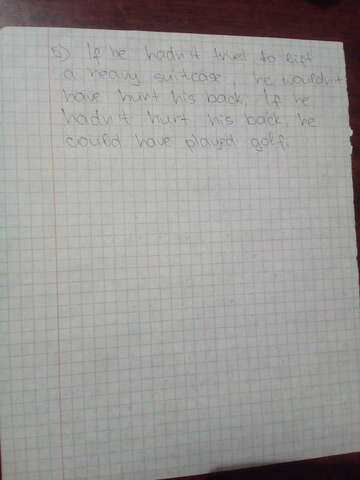 5) If he hadn't tried to lift
a heavy suitcase, he wouldn't
have hurt his back. If he
hadn't hurt his back, he
could have played golf.